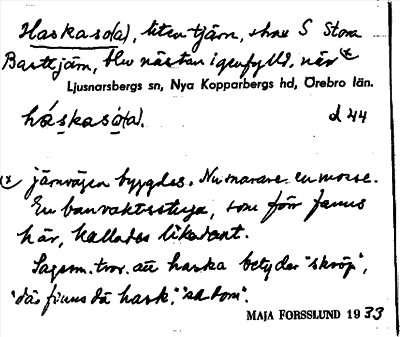 Haskaso(a), liten tjärn, strax S Stora
Basttjärn, blev nästan igenfylld, när x
Ljusnarsbergs sn, Nya Kopparbergs hd, Örebro län.
háskasó(a). d 44
x järnvägen byggdes. Nu snarare en mosse.
En banvaktsstuga, som förr fanns
här, kallades likadant.
Sagsm. tror att haska betyder "skröp",
"dä finns då hask," sa tom".
MAJA FORSSLUND 1933